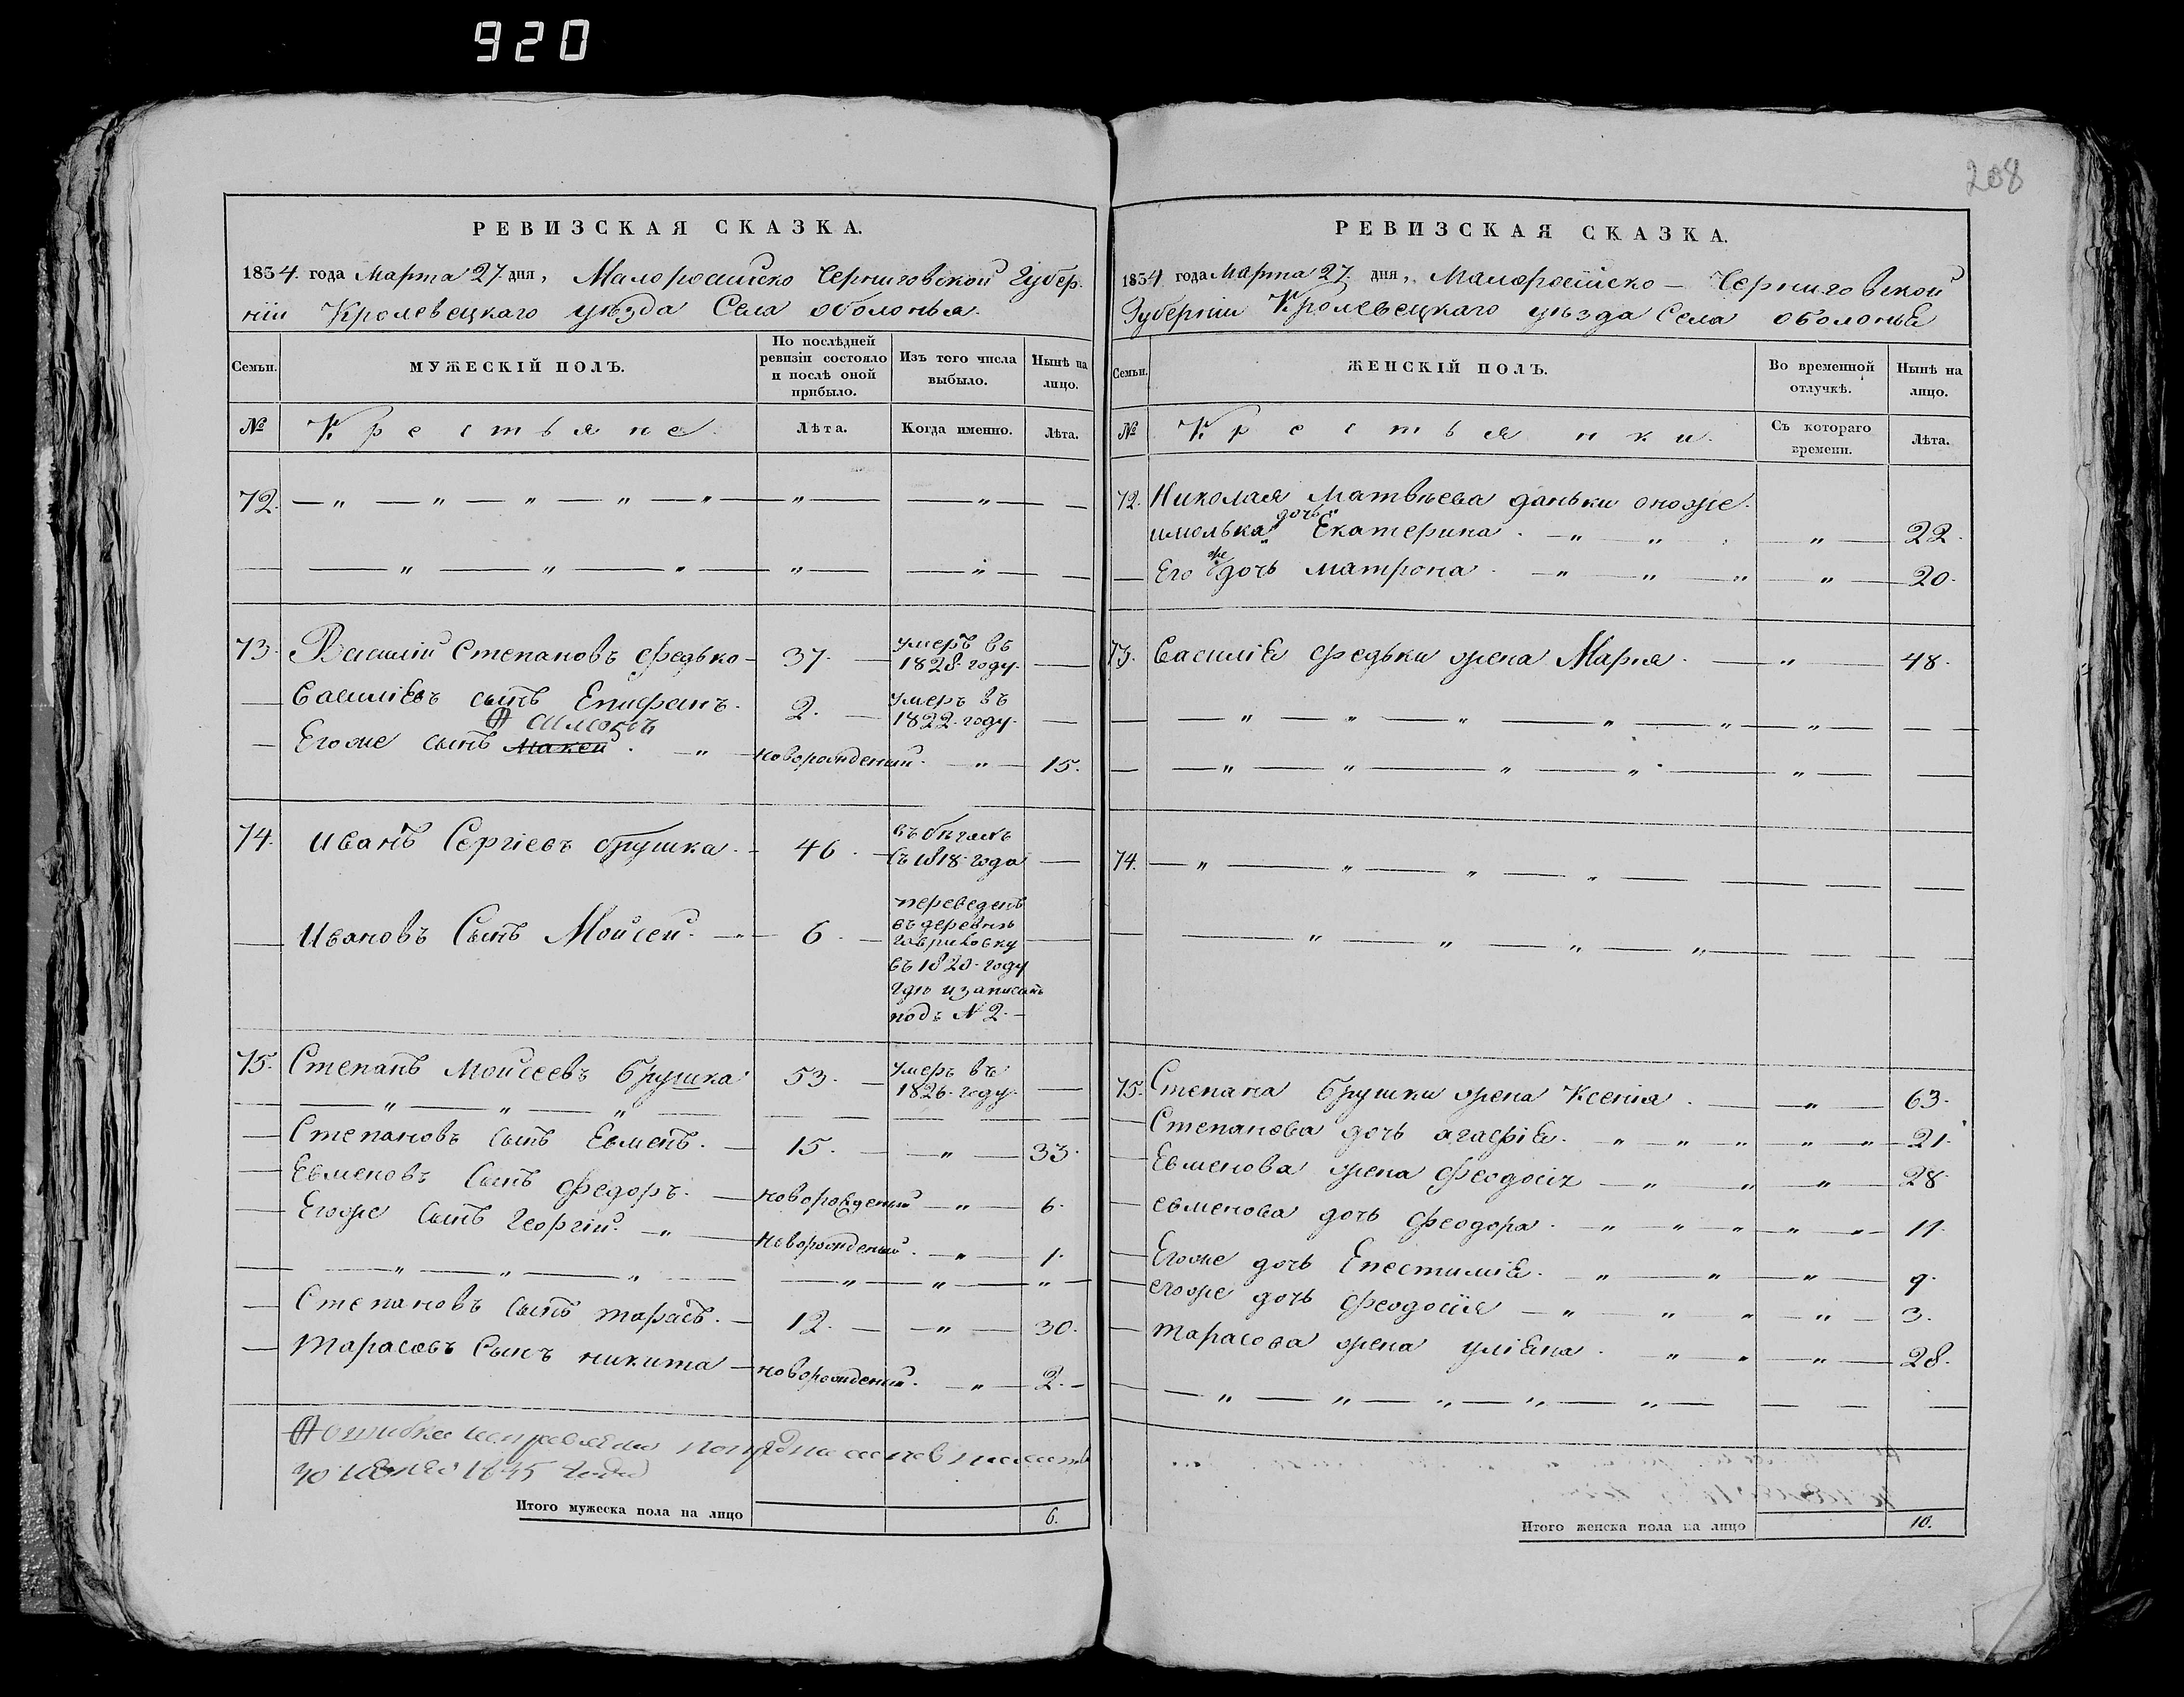 920
208
РЕВИЗСКАЯ СКАЗКА.
1834. года Марта 27. дня, Малоросийско Черниговской Губер
ніи Кролевецкаго уѣзда Села оболонья.
Семьи.
МУЖЕСКІЙ ПОЛЪ.
По послѣдней ревизіи состояло и послѣ оной прибыло.
Изъ того числа выбыло.
Нынѣ на лицо.
№
Крестьяне
Лѣта.
Когда именно.
Лѣта.
72. — „ — „ — „ — „ — „ — „ — „ —
— „ — „ — „ — „ — „ —
73. Василій Степановъ Федько — 37. — умеръ въ 1828. году. —
— Василіевъ сынъ Епифанъ. 2. — умеръ въ 1822. году. —
Симонъ
— Егоже сынъ Макей. — „ — новорожденный. — „ — 15.
74. Иванъ Сергіевъ Брушка. — 46. — въ бѣгахъ съ 1818. года —
— Ивановъ Сынъ Мойсей. — „ — 6. — переведенъ
въ деревню
Гавриловку
въ 1820. году
гдѣ и записанъ
подъ № 2. —
75. Степанъ Мойсеевъ Брушка 53. — умеръ въ 1826. году. —
— „ — „ — „ —
— Степановъ сынъ Евменъ. — 15. — „ — 33.
— Евменовъ Сынъ Федоръ. — новорожденный — „ — 6.
— Егоже Сынъ Георгій. — „ — новорожденный. — „ — 1.
— „ — „ — „ — „ — „ — „ —
— Степановъ сынъ тарасъ. — 12. — „ — 30.
— Тарасовъ Сынъ никита — новорожденный. — „ — 2. —
ошибка
1845 года
Итого мужеска пола на лицо 6.
РЕВИЗСКАЯ СКАЗКА.
1834 года Марта 27. дня, Малоросійско — Черниговской
Губерніи Кролевецкаго уѣзда Села оболонья
Семьи.
ЖЕНСКІЙ ПОЛЪ.
Во временной отлучкѣ.
Нынѣ на лицо.
№
Крестьянки.
Съ котораго времени.
Лѣта.
72. Николая Матвѣева даньки
дочь Екатерина. — „ — „ — „ — 22.
— Его же дочь матрона. — „ — „ — „ — „ — 20.
73. Василія Федьки жена Марія. — „ — 48.
— „ — „ — „ — „ — „ — „ — —
— „ — „ — „ — „ — „ — —
74. — „ — „ — „ — „ — — —
— „ — „ — „ — „ — — —
75. Степана Брушки жена Ксенія. — „ — 63.
— Степанова дочь агафія. „ — „ — „ — „ — „ — 21.
— Евменова жена Феодосія — „ — „ — „ — 28.
— евменова дочь Феодора. — „ — „ — „ — „ — „ — 11.
— Егоже дочь Епестимія. — „ — „ — „ — 9.
— егоже дочь Феодосія — „ — „ — „ — „ — 3.
— Тарасова жена уліяна. — „ — „ — „ — 28.
— „ — „ — „ — „ — „ — — —
Итого женска пола на лицо 10.